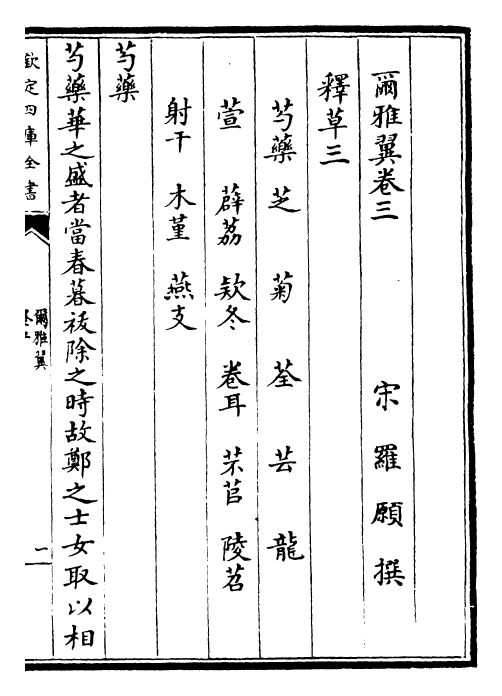 爾雅翼卷三
宋 羅願 撰
釋草三
芍藥 芝 菊 荃 芸 龍
萱 薜荔 欵冬 卷耳 芣苢 陵苕
射干 木堇 燕支
芍藥
芍藥華之盛者當春暮祓除之時故鄭之士女取以相
欽定四庫全書
爾雅翼
一